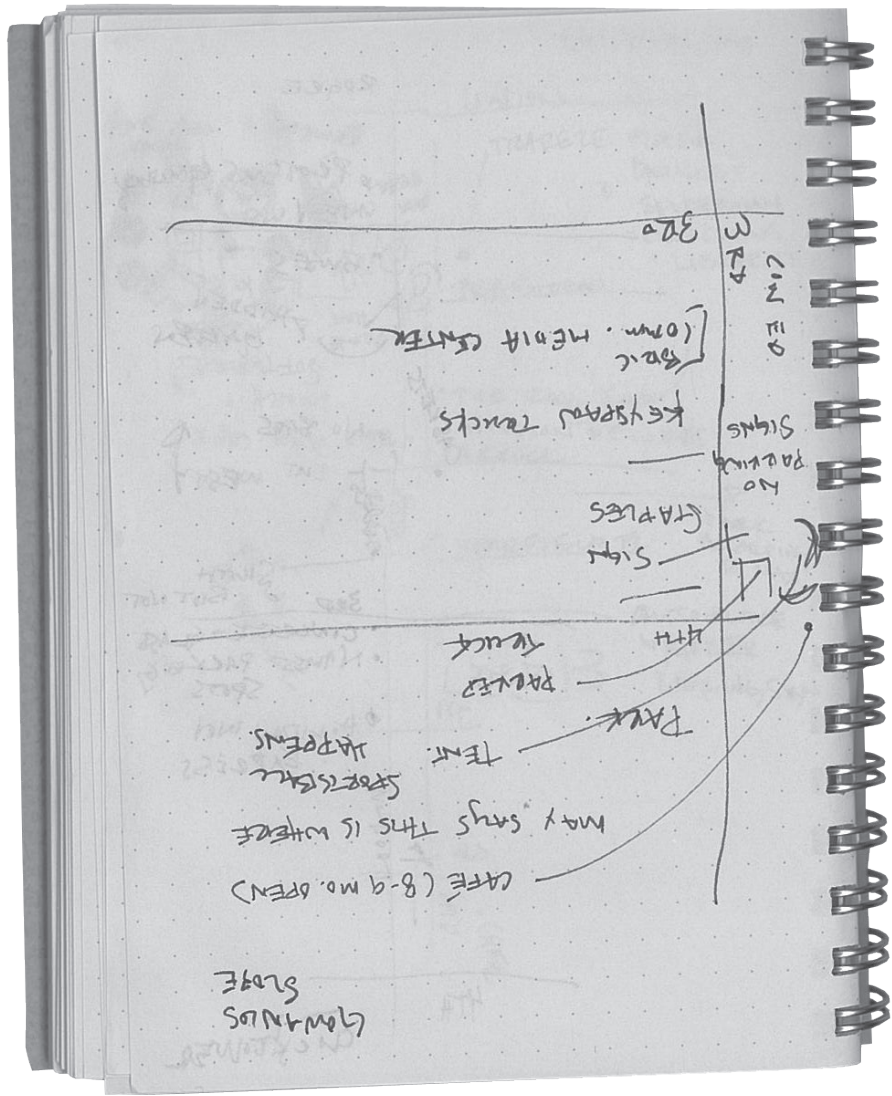 GOWANUS
SLOPE
CAFÉ (8-9 MO. OPEN)
MAX SAYS THIS IS WHERE
SPORTSBALL
HAPPENS.
TENT.
PARK.
PARKED
TRUCK
4TH
SIGN
STAPLES
NO
PARKING
SIGNS
KEYSPAN TRUCKS
BRIC
COMM. MEDIA CENTER
3RD